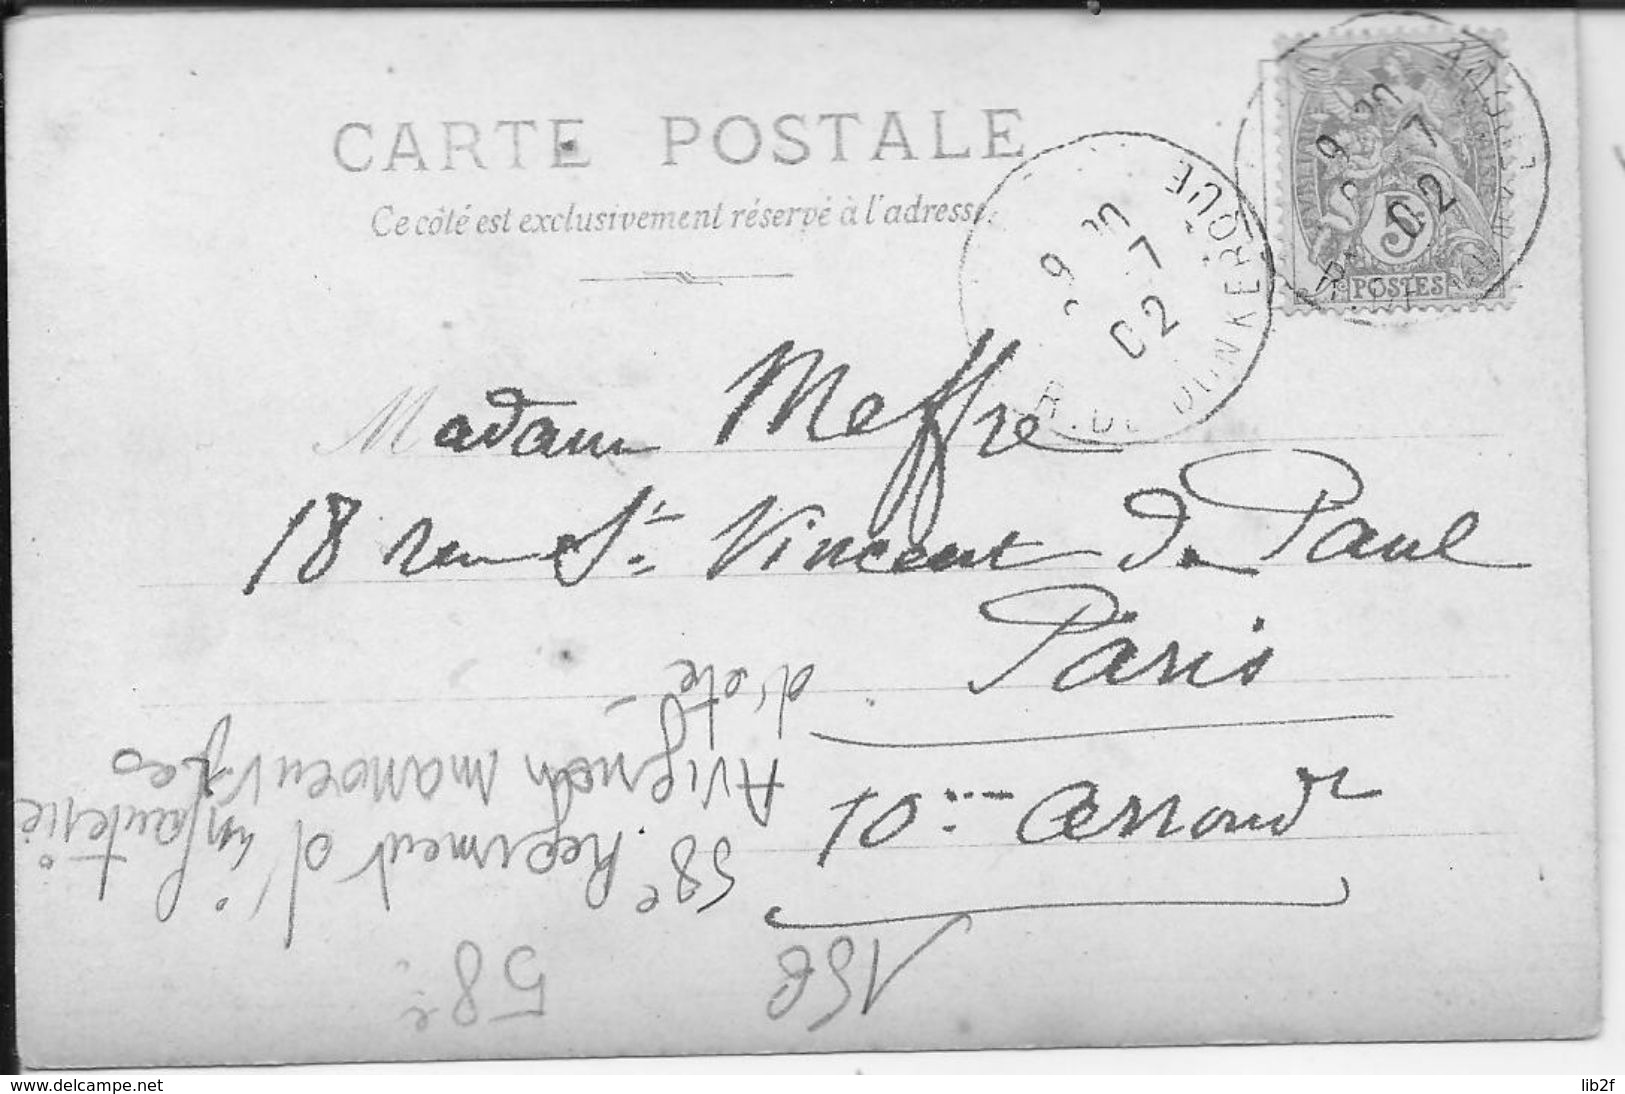 CARTE POSTALE
Ce côté est exclusivement réservé à l'adresse.
R. DE DUNKERQUE
9
7
02
9
7
02
5c
POSTES
Madame Meffre
18 rue St. Vincent de Paul
Paris
10me arrondt
58e Regiment d'infanterie
Avignon manoeuvres
d'été
58e
www.delcampe.net
lib2f